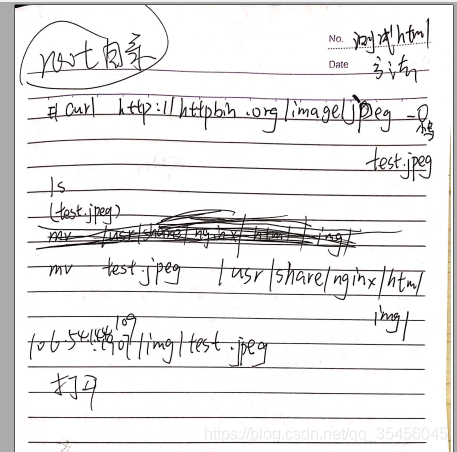 No. 测试html
Date 方法
root目录
# curl http://httpbin.org/image/jpeg -o
test.jpeg
ls
(test.jpeg)
mv /usr/share/nginx/html/img/
mv test.jpeg /usr/share/nginx/html/
img/
/img/test.jpeg
打开
https://blog.csdn.net/qq_35456045